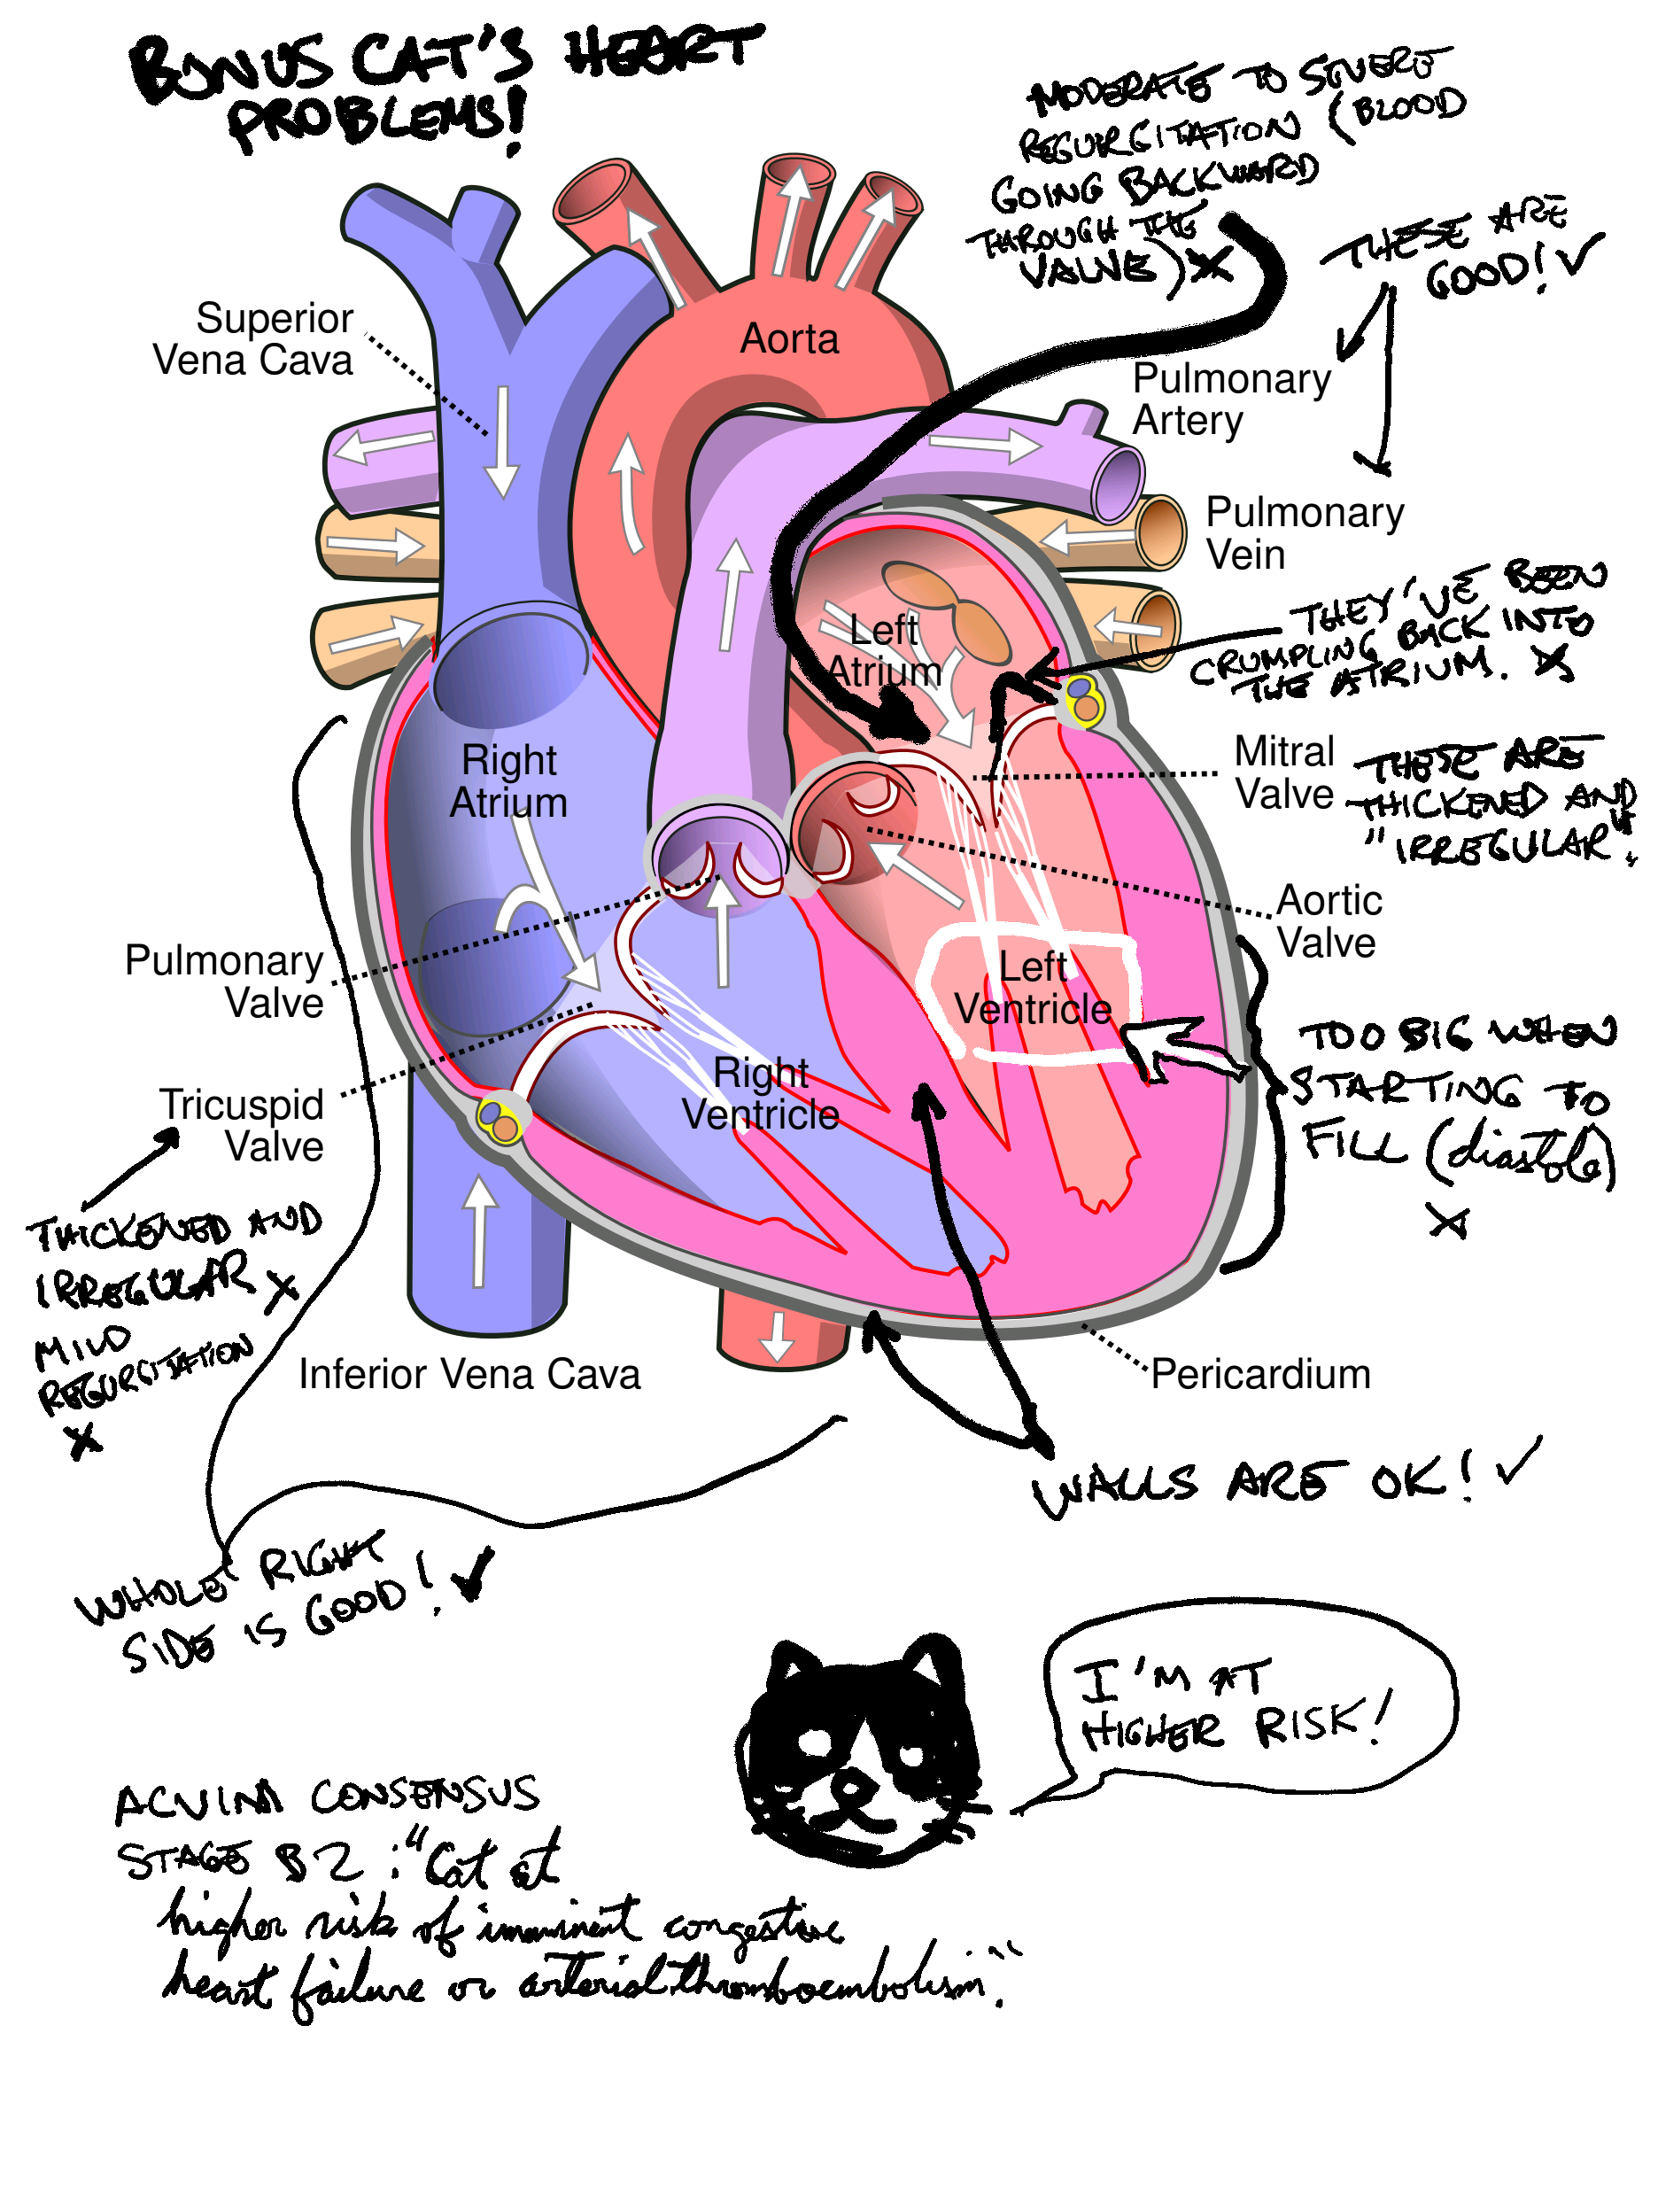 BONUS CAT'S HEART
PROBLEMS!
MODERATE TO SEVERE
REGURGITATION (BLOOD
GOING BACKWARD
THROUGH THE
VALVE) X
THESE ARE
GOOD! ✓
Superior
Vena Cava
Aorta
Pulmonary
Artery
Pulmonary
Vein
THEY'VE BEEN
CRUMPLING BACK INTO
THE ATRIUM. X
Left
Atrium
Right
Atrium
Mitral
Valve
THESE ARE
THICKENED AND
"IRREGULAR".
Aortic
Valve
Pulmonary
Valve
Left
Ventricle
TOO BIG WHEN
STARTING TO
FILL (diastole)
X
Right
Ventricle
Tricuspid
Valve
THICKENED AND
IRREGULAR X
MILD
REGURGITATION
X
Inferior Vena Cava
Pericardium
WALLS ARE OK! ✓
WHOLE RIGHT
SIDE IS GOOD! ✓
I'M AT
HIGHER RISK!
ACVIM CONSENSUS
STAGE B2: "Cat at
higher risk of imminent congestive
heart failure or arterial thromboembolism."